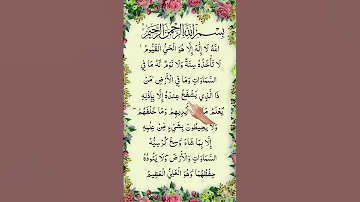 بِسْمِ اللهِ الرَّحْمٰنِ الرَّحِيْمِ
اَللهُ لَا إِلٰهَ إِلَّا هُوَ الْحَيُّ الْقَيُّومُ
لَا تَأْخُذُهُ سِنَةٌ وَلَا نَوْمٌ لَّهُ مَا فِي
السَّمَاوَاتِ وَمَا فِي الْأَرْضِ مَن
ذَا الَّذِي يَشْفَعُ عِندَهُ إِلَّا بِإِذْنِهِ
يَعْلَمُ مَا أَيْدِيهِمْ وَمَا خَلْفَهُمْ
وَلَا يُحِيطُونَ بِشَيْءٍ مِّنْ عِلْمِهِ
إِلَّا بِمَا شَاءَ وَسِعَ كُرْسِيُّهُ
السَّمَاوَاتِ وَالْأَرْضَ وَلَا يَئُودُهُ
حِفْظُهُمَا وَهُوَ الْعَلِيُّ الْعَظِيمُ